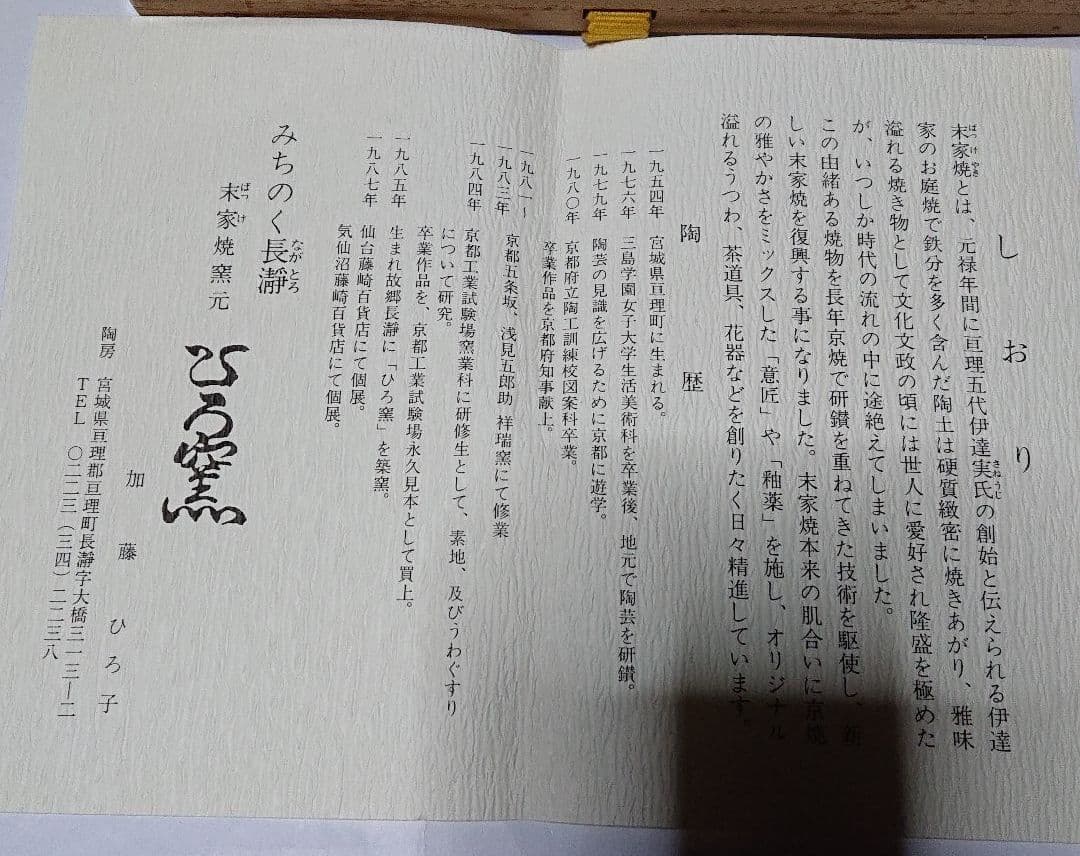 しおり
末家焼とは、元禄年間に亘理五代伊達実氏の創始と伝えられる伊達
家のお庭焼で鉄分を多く含んだ陶土は硬質緻密に焼きあがり、雅味
溢れる焼き物として文化文政の頃には世人に愛好され隆盛を極めた
が、いつしか時代の流れの中に途絶えてしまいました。
この由緒ある焼物を長年京焼で研鑽を重ねてきた技術を駆使し、新
しい末家焼を復興する事になりました。末家焼本来の肌合いに京焼
の雅やかさをミックスした「意匠」や「釉薬」を施し、オリジナル
溢れるうつわ、茶道具、花器などを創りたく日々精進しています。
陶歴
一九五四年 宮城県亘理町に生まれる。
一九七六年 三島学園女子大学生活美術科を卒業後、地元で陶芸を研鑽。
一九七九年 陶芸の見識を広げるために京都に遊学。
一九八〇年 京都府立陶工訓練校図案科卒業。
卒業作品を京都府知事献上。
一九八一～
一九八三年 京都五条坂、浅見五郎助 祥瑞窯にて修業
一九八四年 京都工業試験場窯業科に研修生として、素地、及びうわぐすり
について研究。
卒業作品を、京都工業試験場永久見本として買上。
一九八五年 生まれ故郷長瀞に「ひろ窯」を築窯。
一九八七年 仙台藤崎百貨店にて個展。
気仙沼藤崎百貨店にて個展。
みちのく長瀞
末家焼窯元
ひろ窯
加藤ひろ子
陶房 宮城県亘理郡亘理町長瀞字大橋三一三ー二
TEL 〇二二三(三四)二二三八